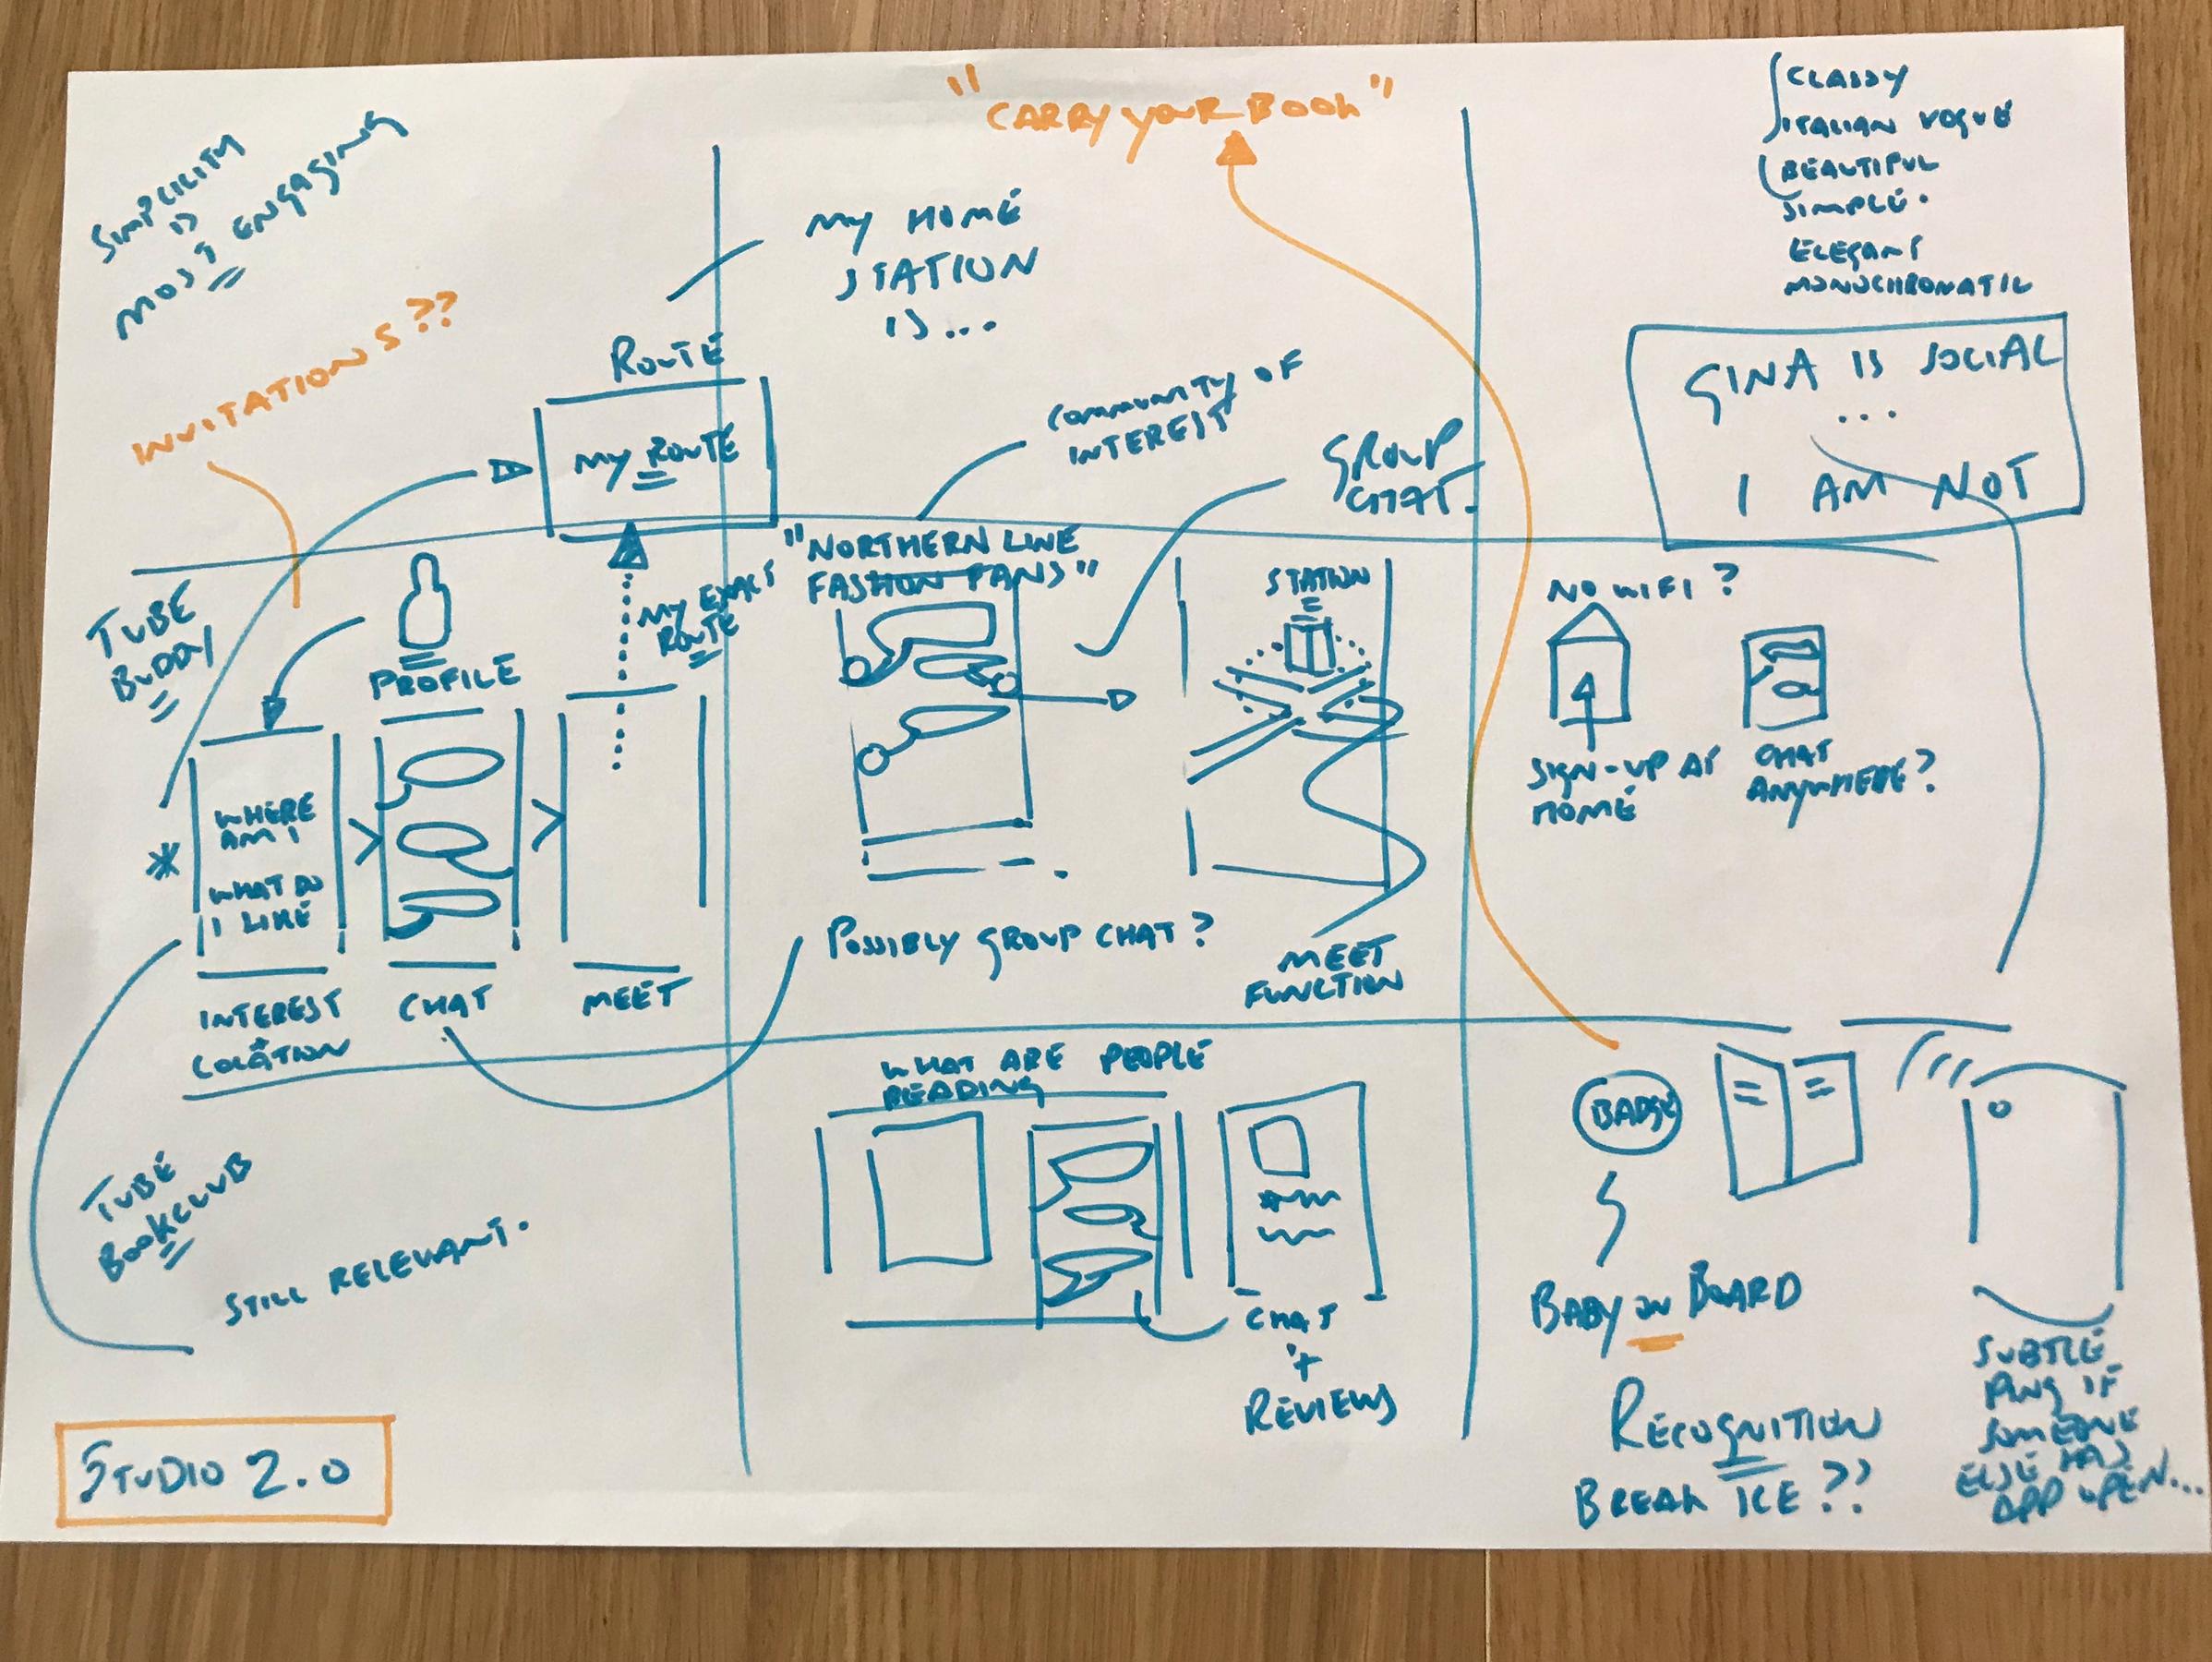 SIMPLICITY
IS
MOST ENGAGING
"CARRY YOUR BOOK"
CLASSY
ITALIAN VOGUE
BEAUTIFUL
SIMPLE.
ELEGANT
MONOCHROMATIC
INVITATIONS??
MY HOME
STATION
IS...
ROUTE
MY ROUTE
COMMUNITY OF
INTEREST
GROUP
CHAT.
GINA IS SOCIAL
...
I AM NOT
TUBE
BUDDY
PROFILE
MY EXACT
ROUTE
"NORTHERN LINE
FASHION FANS"
STATION
NO WIFI?
SIGN-UP AT
HOME
CHAT
ANYWHERE?
*
WHERE
AM I
WHAT DO
I LIKE
INTEREST
+
LOCATION
CHAT
MEET
POSSIBLY GROUP CHAT?
MEET
FUNCTION
TUBE
BOOKCLUB
STILL RELEVANT.
WHAT ARE PEOPLE
READING
CHAT
+
REVIEWS
BADGE
BABY ON BOARD
RECOGNITION
BREAK ICE??
SUBTLE
PING IF
SOMEONE
ELSE HAS
APP OPEN...
STUDIO 2.0